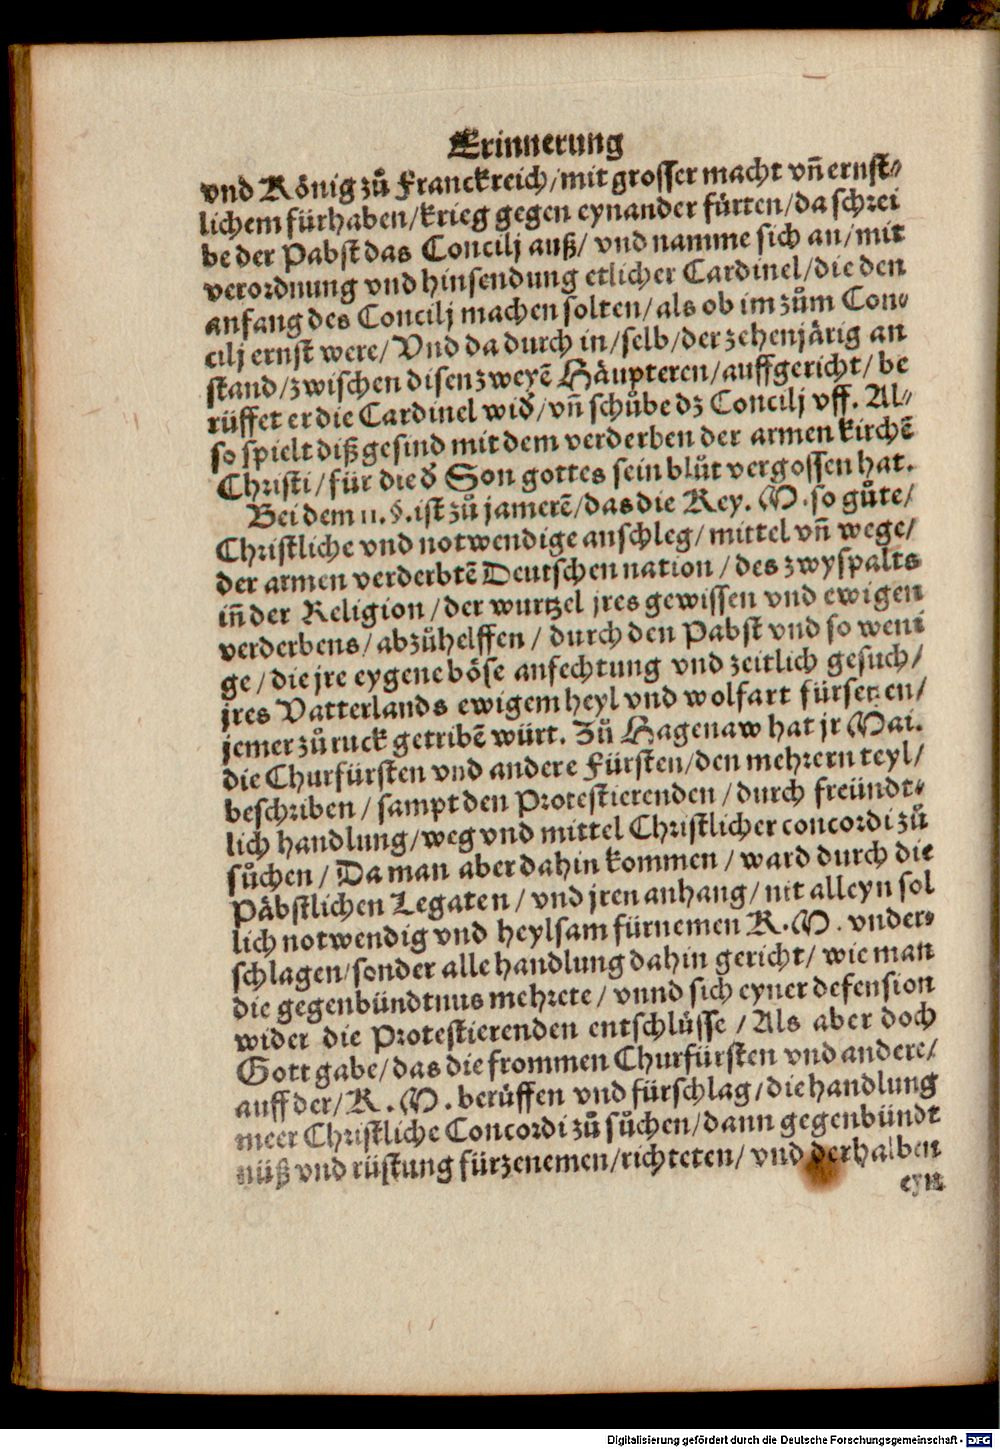 Erinnerung
vnd König zů Franckreich/mit grosser macht vñ ernst⸗
lichem fürhaben/krieg gegen eynander fürten/da schrei
be der Pabst das Concilj auß/ vnd namme sich an/mit
verordnung vnd hinsendung etlicher Cardinel/die den
anfang des Concilj machen solten/als ob im zům Con⸗
cilj ernst were/ Vnd da durch in/selb/der zehenjärig an
stand/zwischen disen zweyē Häupteren/auffgericht/ be
rüffet er die Cardinel wid̕/vñ schůbe dz Concilj vff. Al⸗
so spielt diß gesind mit dem verderben der armen kirchē
Christi/für die d̕ Son gottes sein blůt vergossen hat.
Bei dem 11. §. ist zů jamerē/das die Key. M. so gůte/
Christliche vnd notwendige anschleg/mittel vñ wege/
der armen verderbtē Deutschen nation/des zwyspalts
iñ der Religion/der wurtzel jres gewissen vnd ewigen
verderbens/abzůhelffen/ durch den Pabst vnd so weni
ge/die jre eygene böse anfechtung vnd zeitlich gesuch/
jres Vatterlands ewigem heyl vnd wolfart fürsetzen/
jemer zů ruck getribē würt. Zů Hagenaw hat jr Mai.
die Churfürsten vnd andere Fürsten/den mehrern teyl/
beschriben/sampt den Protestierenden/durch freündt⸗
lich handlung/weg vnd mittel Christlicher concordi zů
sůchen/ Da man aber dahin kommen/ward durch die
Päbstlichen Legaten/ vnd jren anhang/nit alleyn sol
lich notwendig vnd heylsam fürnemen K. M. vnder⸗
schlagen/sonder alle handlung dahin gericht/ wie man
die gegenbündtnus mehrete/ vnnd sich eyner defension
wider die Protestierenden entschlüsse/Als aber doch
Gott gabe/das die frommen Churfürsten vnd andere/
auff der/K. M. berüffen vnd fürschlag/die handlung
meer Christliche Concordi zů sůchen/dann gegenbündt
nüß vnd rüstung fürzenemen/richteten/ vnd derhalben
eyn
Digitalisierung gefördert durch die Deutsche Forschungsgemeinschaft - DFG